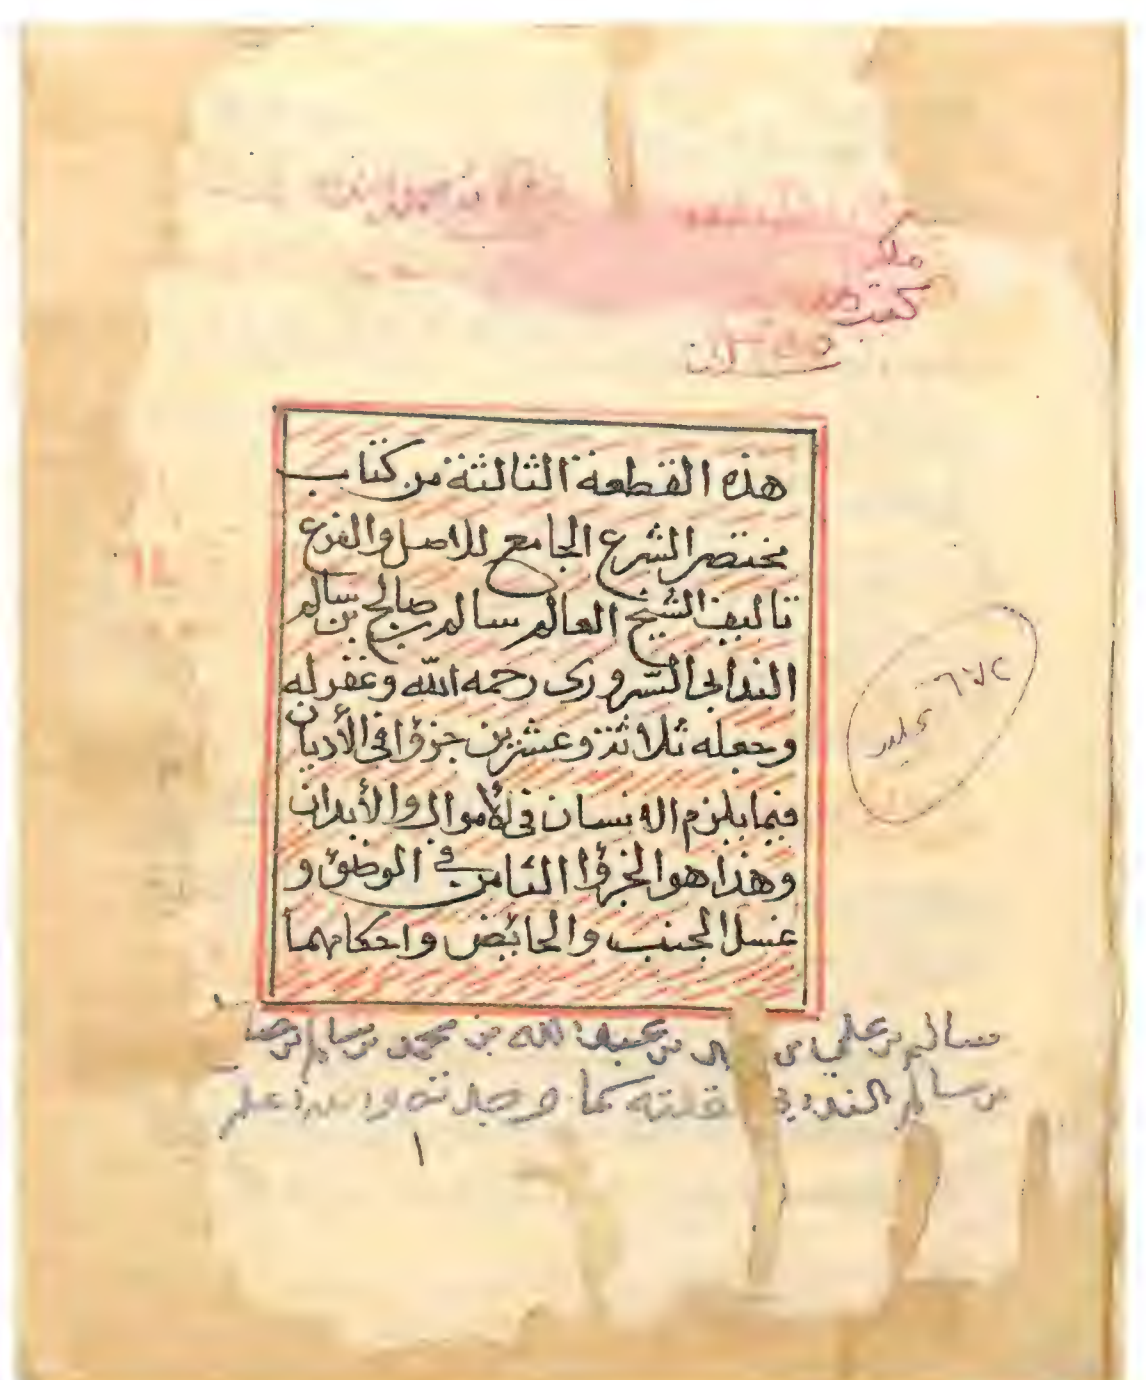 هذه القطعة الثالثة من كتاب
مختصر الشرع الجامع للاصل والفرع
تاليف الشيخ العالم سالم بن صالح بن سالم
الندابي السروري رحمه الله وغفر له
وجعله ثلاثة وعشرين جزؤا في الأديان
فيما يلزم الانسان في الأموال والأبدان
وهذا هو الجزؤا الثامن في الوضؤ و
غسل الجنب والحائض واحكامهما
سالم بن علي بن عبدالله بن محمد بن سالم بن
بن سالم كما وجدته والله اعلم
١